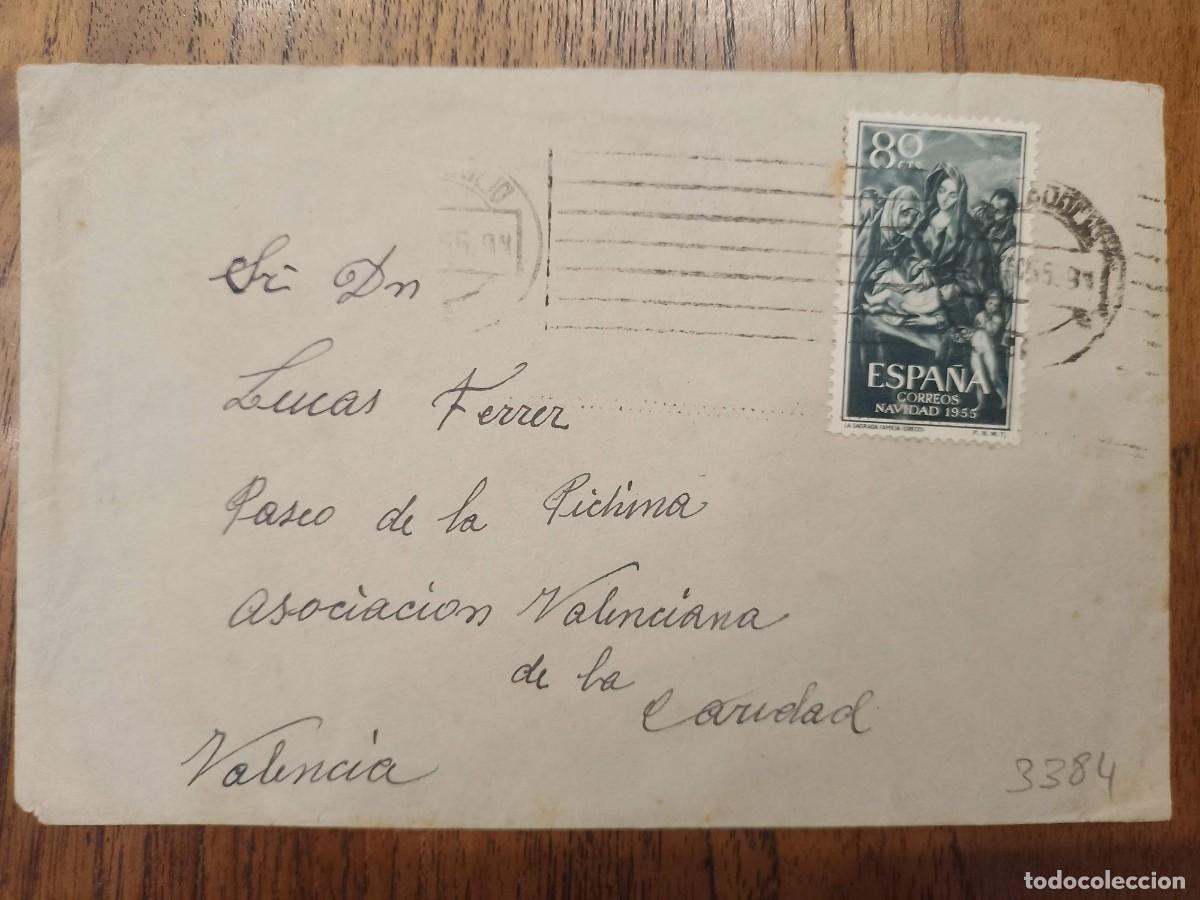 80
CTS
ESPAÑA
CORREOS
NAVIDAD 1955
LA SAGRADA FAMILIA (GRECO) F.N.M.T.
Sr Dn
Lucas Ferrer
Paseo de la Pichina
Asociacion Valenciana
de la
Caridad
Valencia
3384
todocoleccion